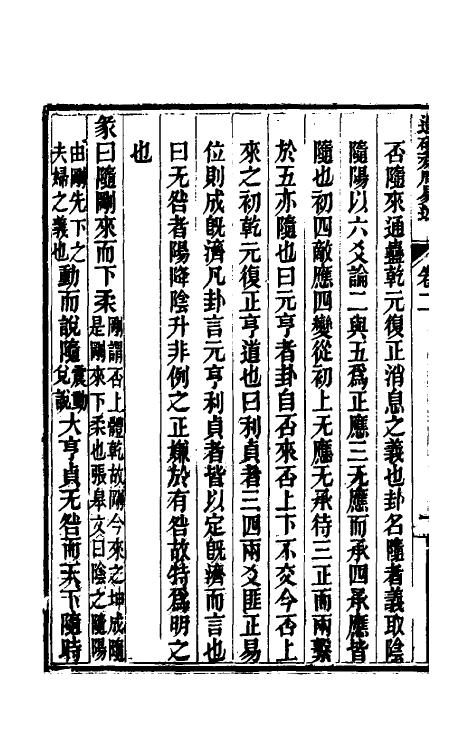 卷二
否隨來通蠱乾元復正消息之義也卦名隨者義取陰
隨陽以六爻論二與五爲正應三无應而承四承應皆
隨也初四敵應四變從初上无應无承待三正而兩繫
於五亦隨也曰元亨者卦自否來否上下不交今否上
來之初乾元復正亨道也曰利貞者三四兩爻匪正易
位則成旣濟凡卦言元亨利貞者皆以定旣濟而言也
曰无咎者陽降陰升非例之正嫌於有咎故特爲明之
也
彖曰隨剛來而下柔剛謂否上體乾故剛今來之坤成隨是剛來下柔也張皋文曰陰之隨陽
由剛先下之夫婦之義也動而說隨震動兌說大亨貞无咎而天下隨時